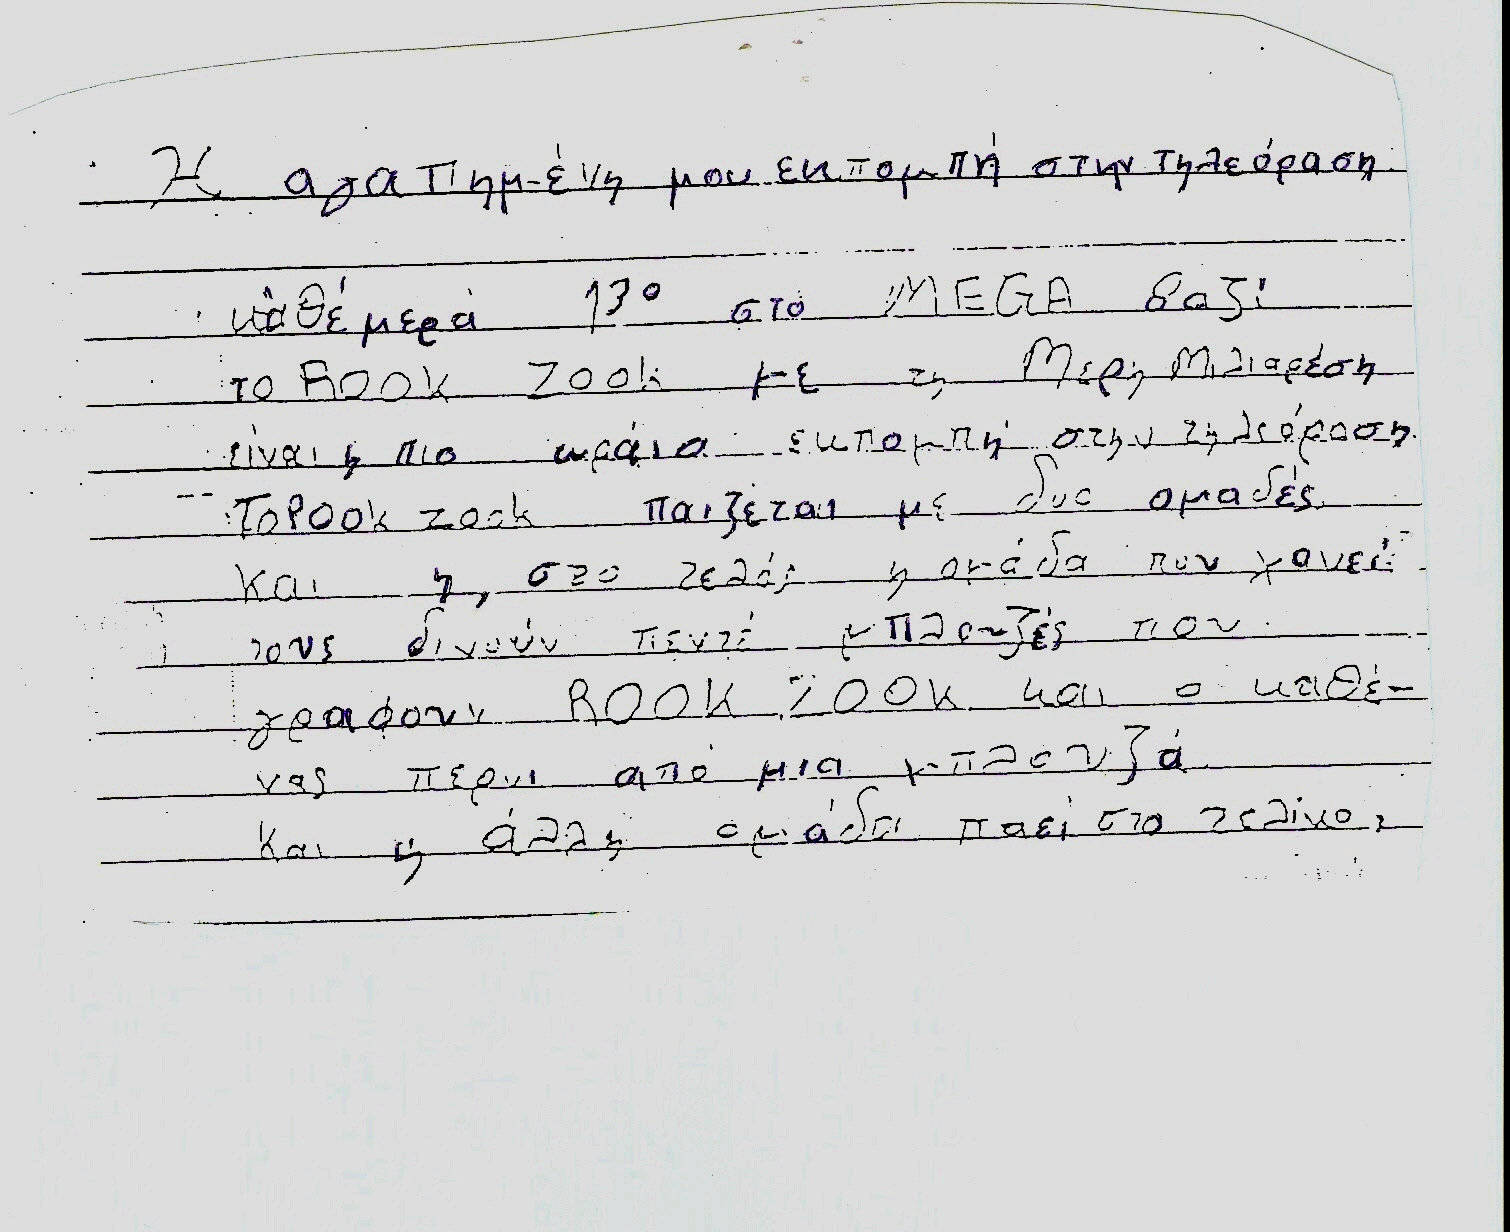 Η αγαπημένη μου εκπομπή στην τηλεόραση
κάθέμερά 13⁰ στό MEGA βαζί
το ROOK ZOOK με τη Μερη Μιλιαρέση
είναι η πιο ωράια εκπομπή στην τηλεόραση.
Το ROOK ZOOK παιζέται με δυο ομαδές
Και η, στο τελός η ομάδα που χανεί
τους δινούν πεντέ μπλουζές που
γραφουν ROOK ZOOK και ο καθέ-
νας περνι από μια μπλουζά
Και η άλλη ομάδα παεί στο τελίκο,